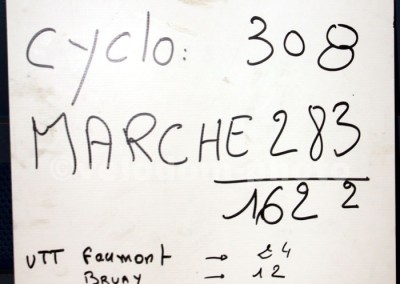 Cyclo: 308
MARCHE 283
1622
VTT Faumont → 24
BRUAY → 12